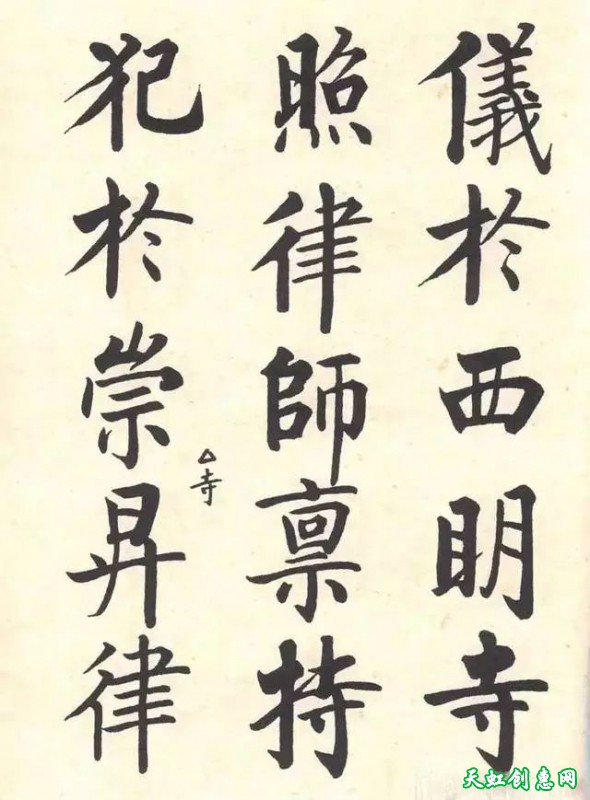 儀於西明寺
照律師禀持
犯於崇昇律
△寺
天虹创惠网